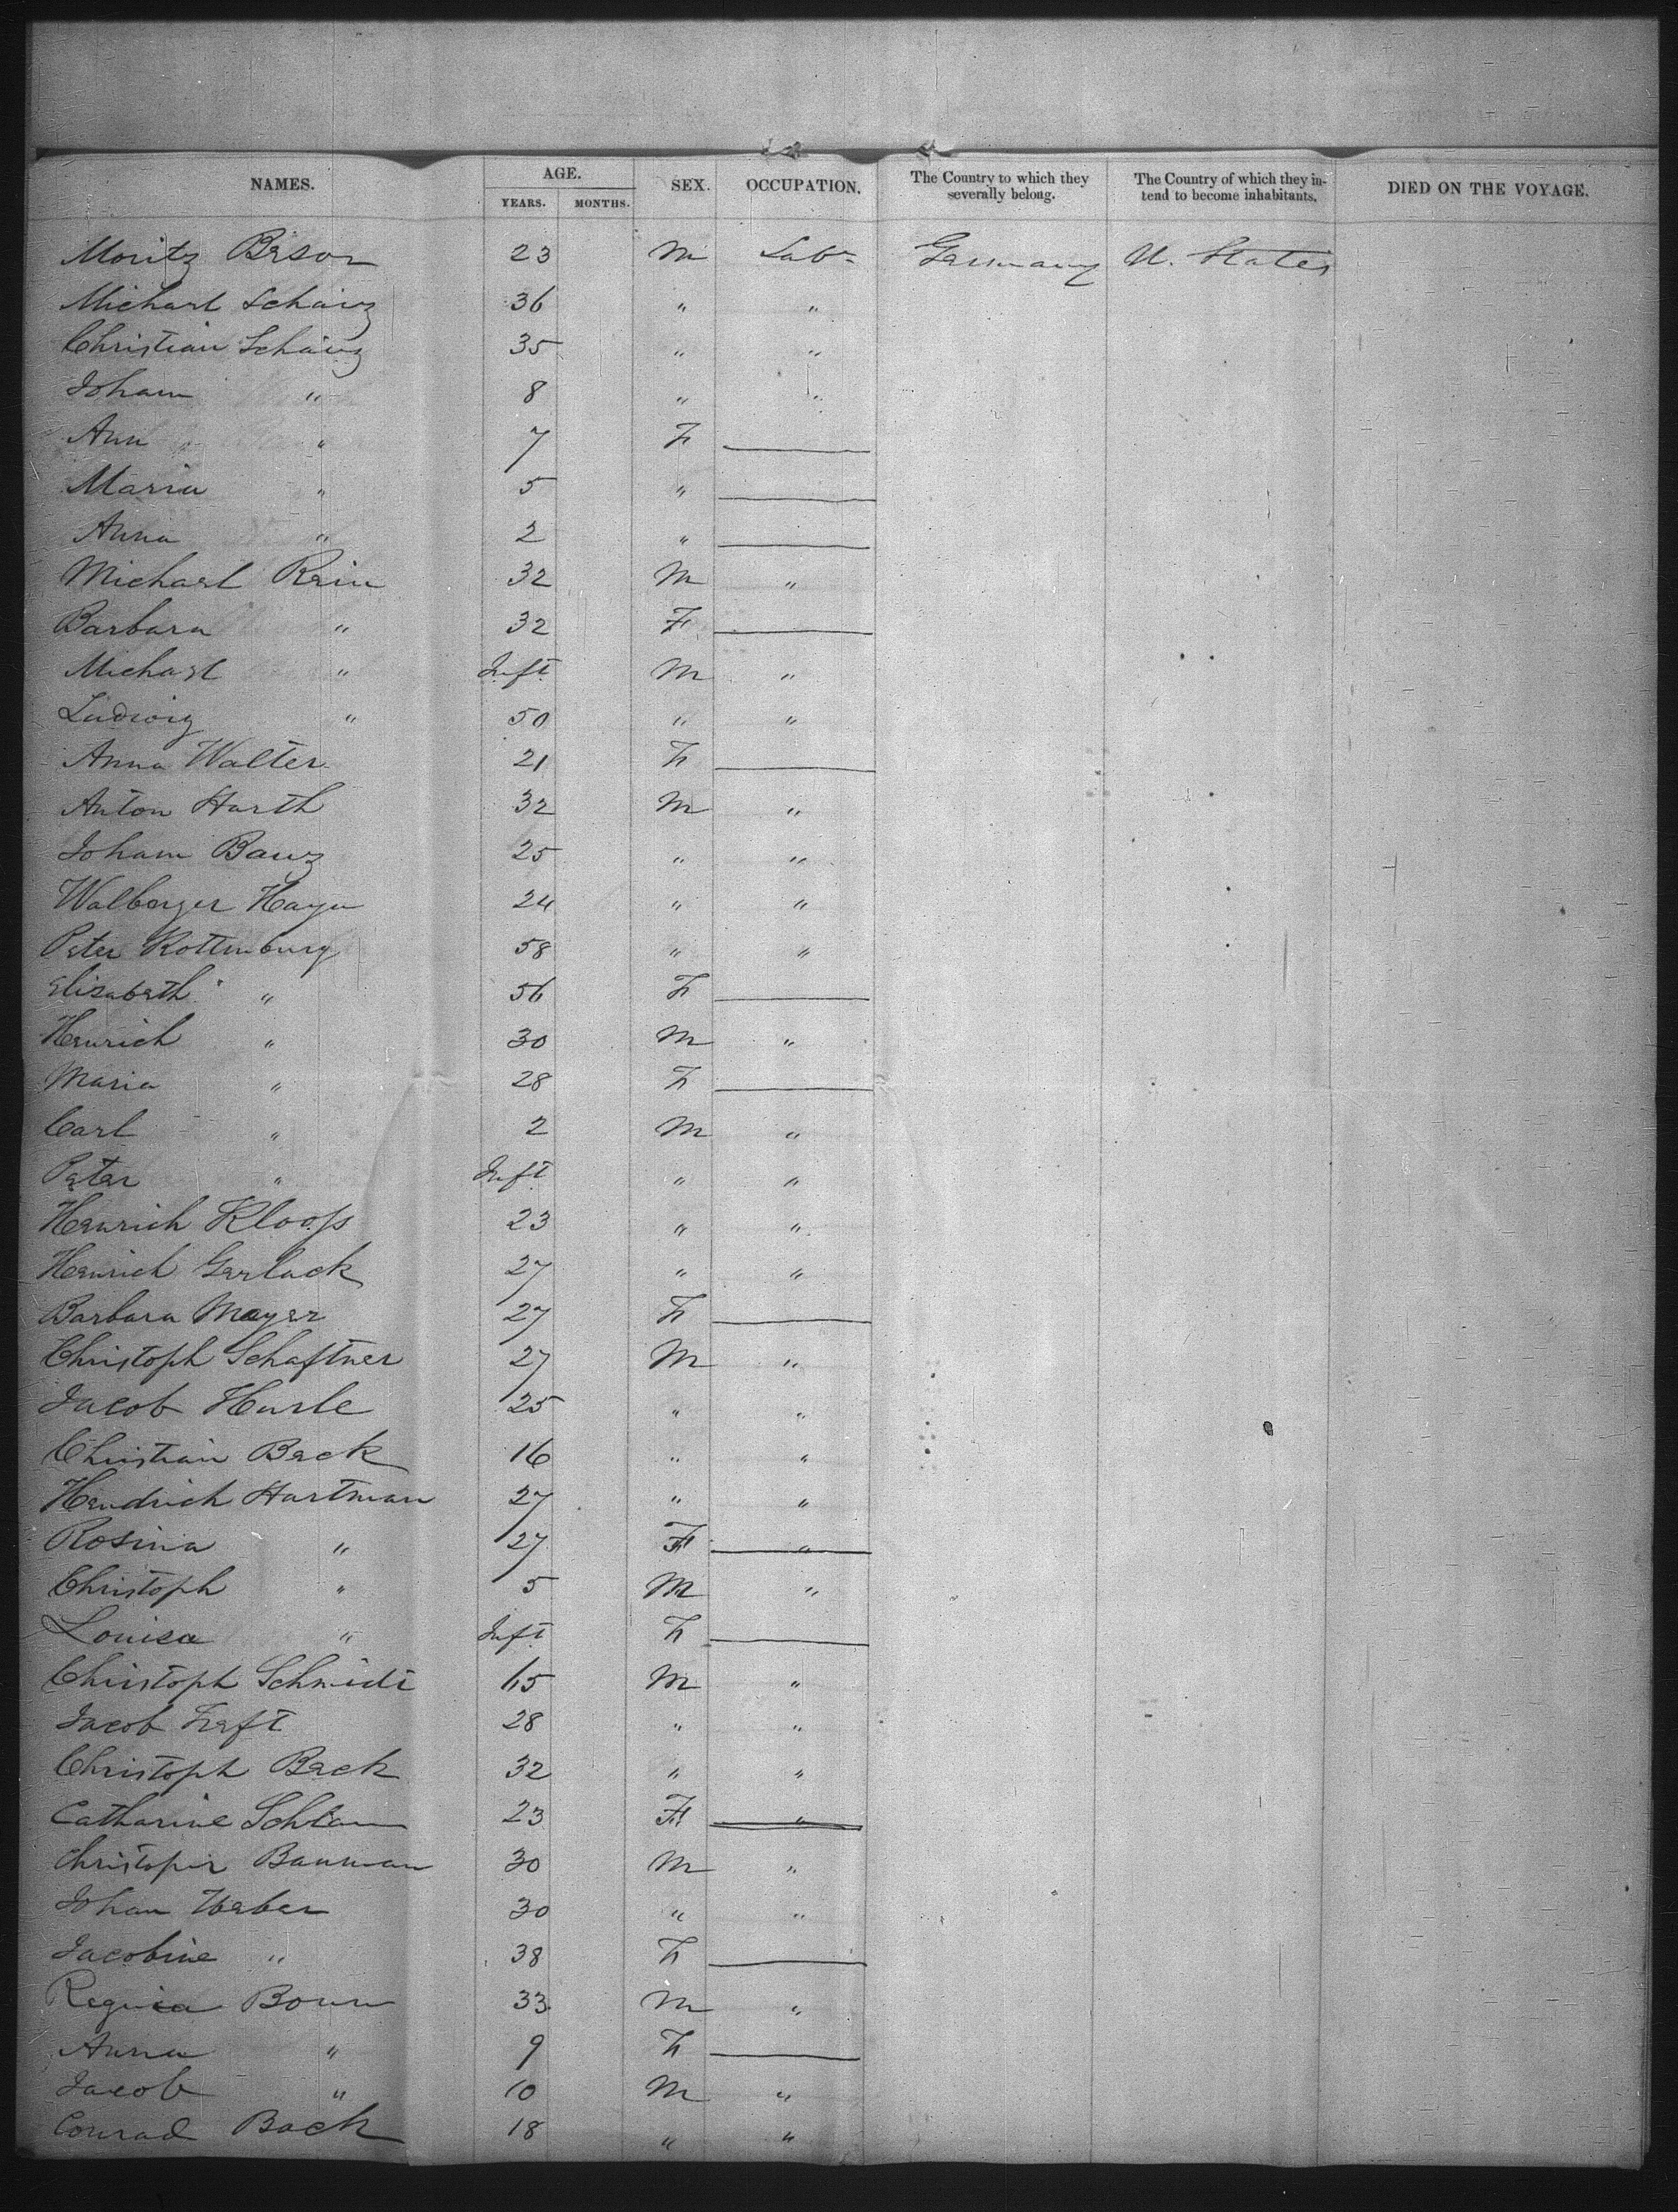 NAMES. AGE. YEARS. MONTHS. SEX. OCCUPATION. The Country to which they severally belong. The Country of which they intend to become inhabitants. DIED ON THE VOYAGE.
Moritz Beson 23 M Labr Germany U. States
Michael Schaüz 36 " "
Christian Schaüz 35 " "
Joham " 8 " "
Ann " 7 F
Maria " 5 "
Anna " 2 "
Michael Rein 32 M "
Barbara " 32 F
Michael " Inft M "
Ludwig " 50 " "
Anna Walter 21 F
Anton Harth 32 M "
Joham Bauz 25 " "
Walberger Hayn 24 " "
Peter Rottenburg 58 " "
Elizabeth " 56 F
Henrich " 30 M "
Maria " 28 F
Carl " 2 M "
Peter " Inft " "
Henrich Klooss 23 " "
Henrich Gerlack 27 " "
Barbara Mayer 27 F
Christoph Schaftner 27 M "
Jacob Hurle 25 " "
Christian Beck 16 " "
Hendrich Hartman 27 " "
Rosina " 27 F "
Christoph " 5 M "
Louisa " Inft F
Christoph Schmidt 15 M "
Jacob Feft 28 " "
Christoph Beck 32 " "
Catharine Schlam 23 F "
Christoper Bauman 30 M "
Johan Weber 30 " "
Jacobine " 38 F
Regina Bonn 33 M "
Anna " 9 F
Jacob " 10 M "
Conrad Back 18 " "